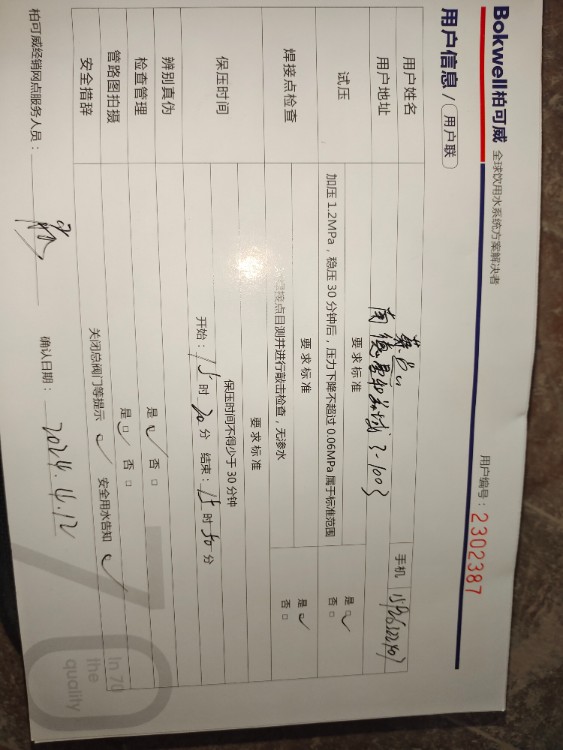 Bokwell柏可威 全球饮用水系统方案解决者
用户编号：2302387
用户信息 / 用户联
用户姓名
手机
用户地址 3-1003
要求标准
试压
加压 1.2MPa，稳压 30 分钟后，压力下降不超过 0.06MPa 属于标准范围
是 ✓
否 □
要求标准
焊接点检查
焊接点目测并进行敲击检查，无渗水
是 ✓
否 □
要求标准
保压时间
保压时间不得少于 30 分钟
开始：15 时 20 分 结束：15 时 50 分
辨别真伪 是 ✓ 否 □
检查管理 是 ✓ 否 □
管路图拍摄
安全措辞 关闭总阀门等提示 ✓ 安全用水告知 ✓
柏可威经销网点服务人员：
确认日期：2024.4.12
In 70
the
quality